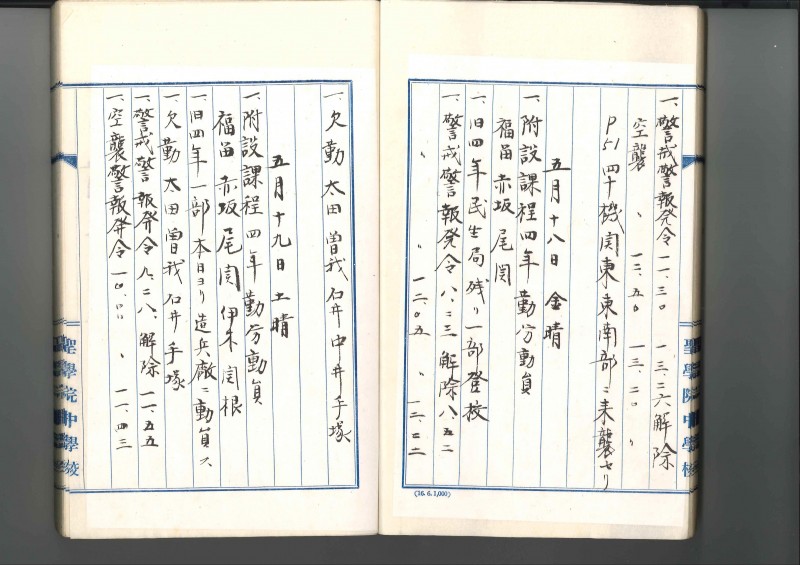 一、警戒警報発令 一一、三〇 一三、二六解除
空襲 〃 一二、五〇 一三、二〇 〃
P51四十機関東東南部ニ来襲セリ
五月十八日 金晴
一、附設課程四年勤労動員
福留 赤坂 尾関
一、旧四年民生局残リ一部登校
一、警戒警報発令 八、三三 解除 八、五二
〃 〃 一二、〇五 〃 一二、二二
聖學院中學校
(16.6.1,000)
一、欠勤 太田 曽我 石井 中井 手塚
五月十九日 土晴
一、附設課程四年 勤労動員
福留 赤坂 尾関 伊木 関根
一、旧四年一部本日ヨリ造兵廠ニ動員ス
一、欠勤 太田 曽我 石井 手塚
一、警戒警報発令 九、二八、解除 一一、五五
一、空襲警報発令 一〇、〇〇 〃 一一、四三
聖學院中學校